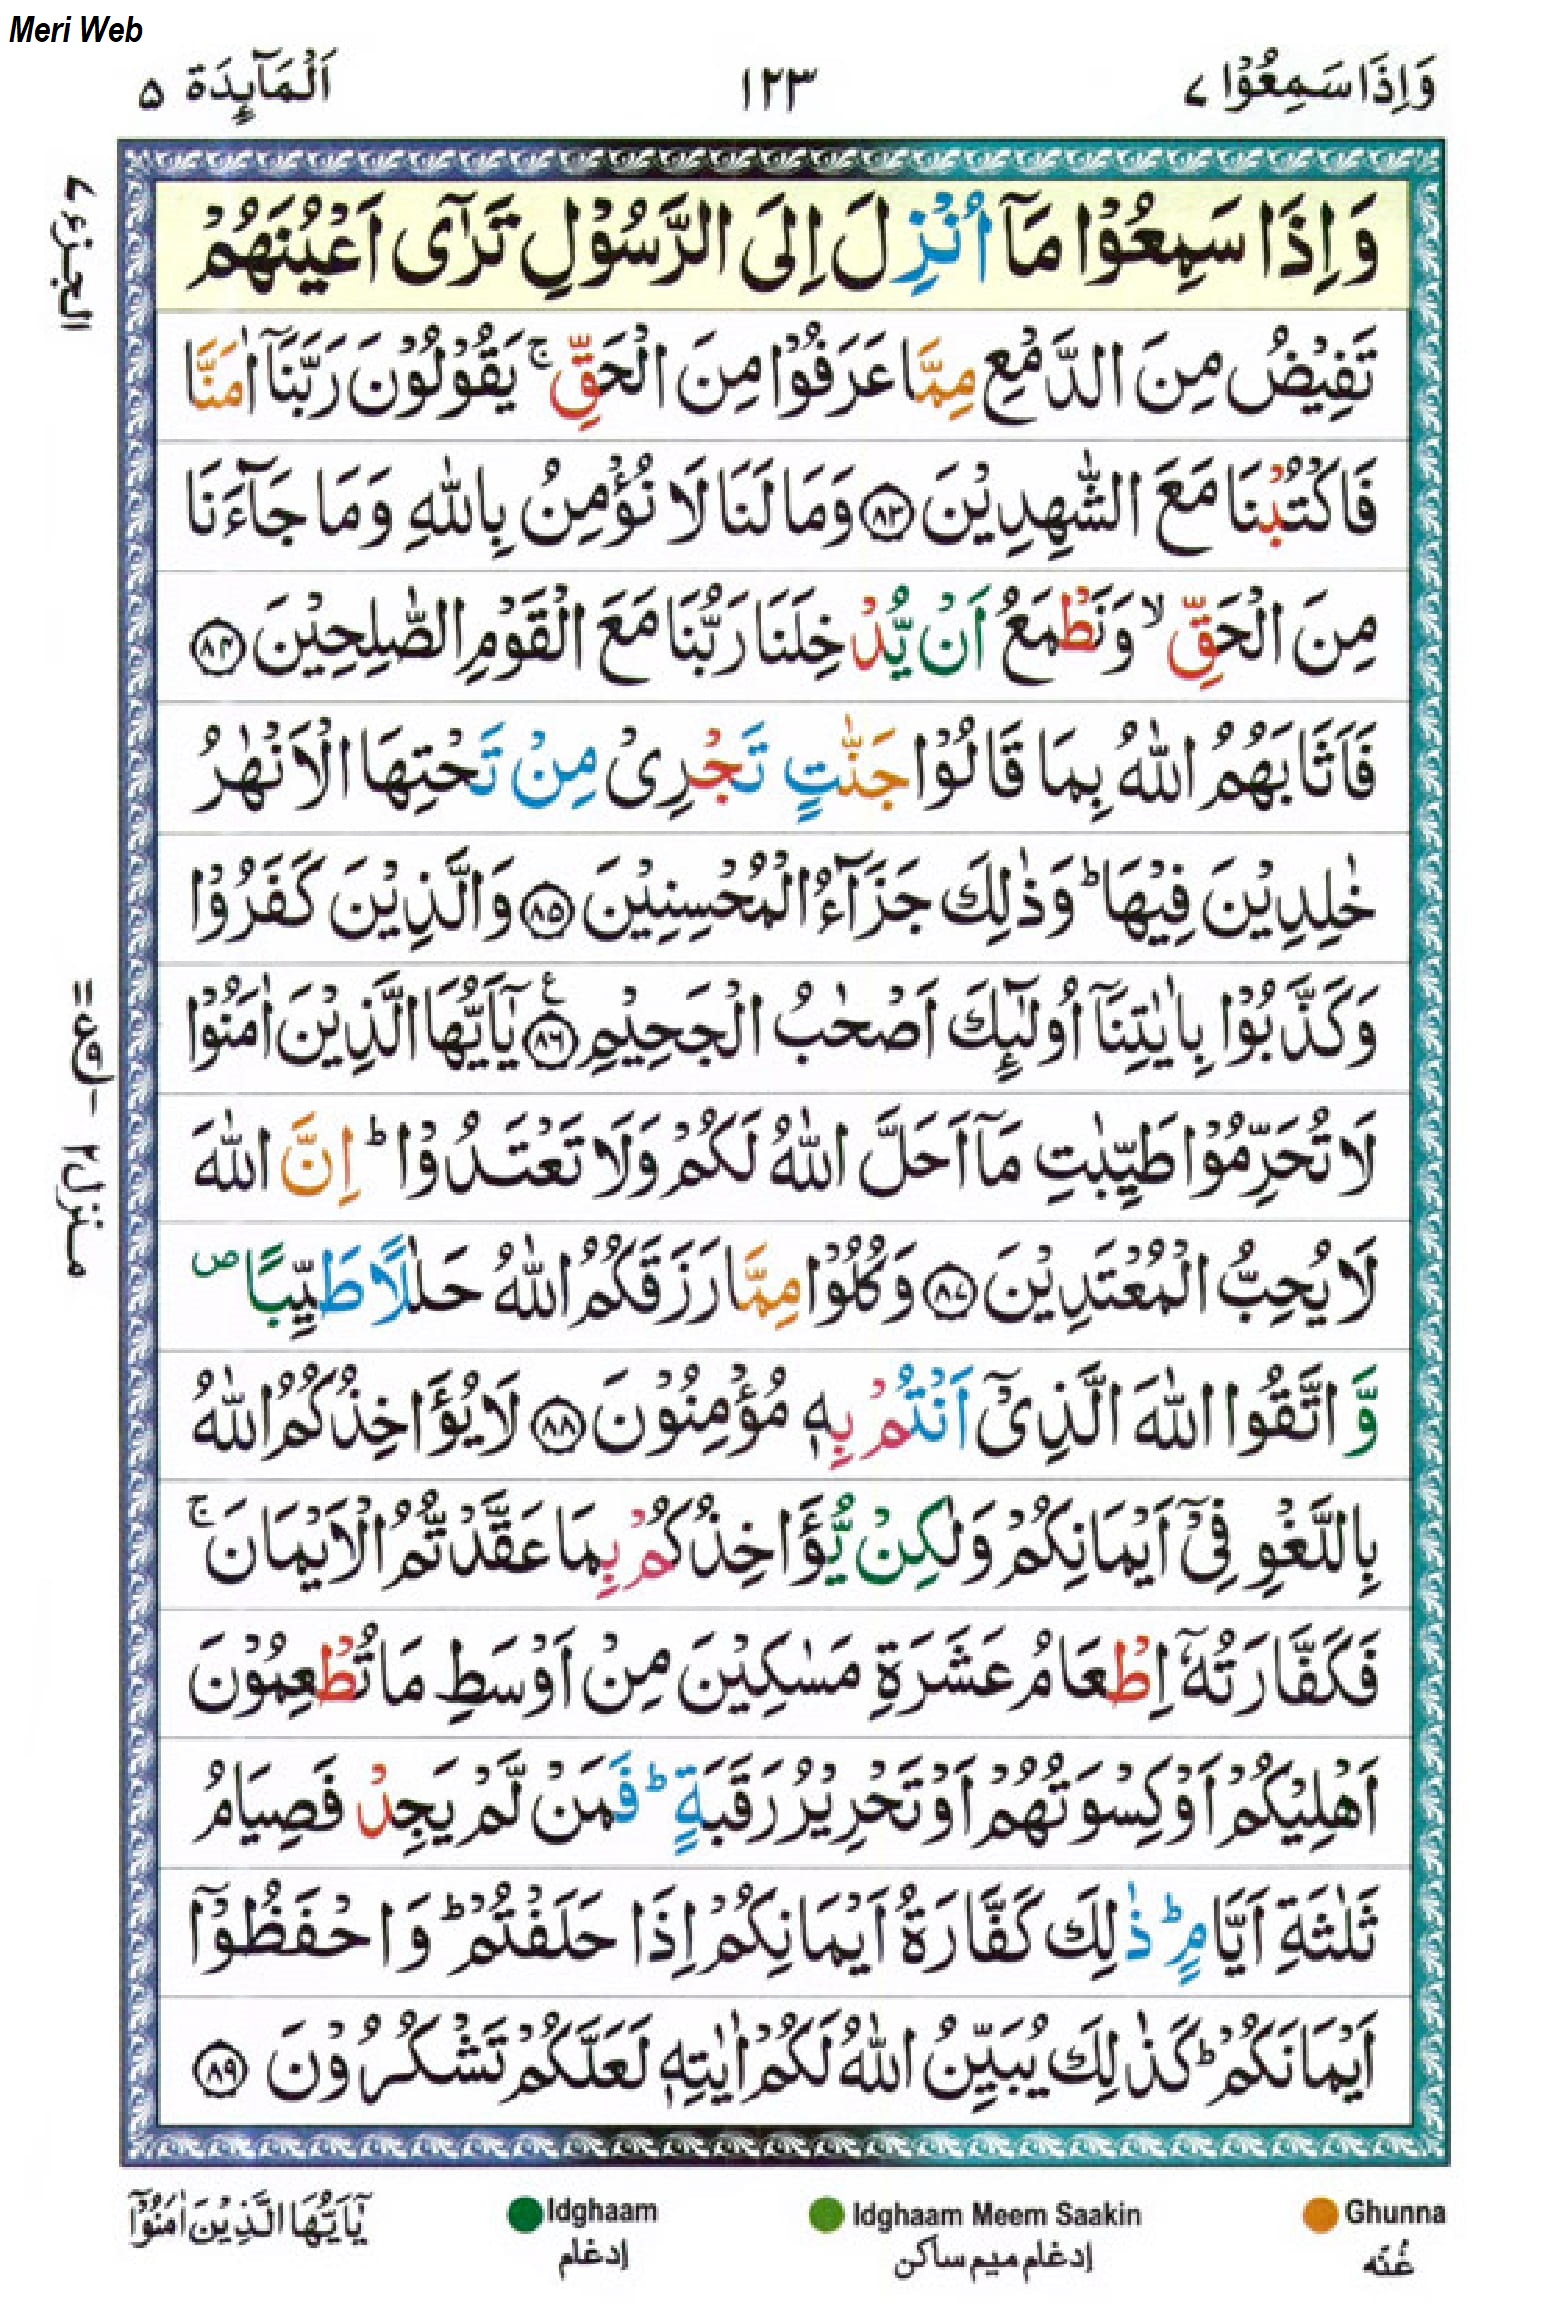 Meri Web
وَاِذَا سَمِعُوْا ٧
١٢٣
اَلْمَآىِٕدَة ٥
الجزء ٧
وَاِذَا سَمِعُوْا مَاۤ اُنْزِلَ اِلَى الرَّسُوْلِ تَرٰۤى اَعْيُنَهُمْ
تَفِيْضُ مِنَ الدَّمْعِ مِمَّا عَرَفُوْا مِنَ الْحَقِّ ۚ يَقُوْلُوْنَ رَبَّنَاۤ اٰمَنَّا
فَاكْتُبْنَا مَعَ الشّٰهِدِيْنَ ﴿٨٣﴾ وَمَا لَنَا لَا نُؤْمِنُ بِاللّٰهِ وَمَا جَآءَنَا
مِنَ الْحَقِّ ۙ وَنَطْمَعُ اَنْ يُّدْخِلَنَا رَبُّنَا مَعَ الْقَوْمِ الصّٰلِحِيْنَ ﴿٨٤﴾
فَاَثَابَهُمُ اللّٰهُ بِمَا قَالُوْا جَنّٰتٍ تَجْرِىْ مِنْ تَحْتِهَا الْاَنْهٰرُ
خٰلِدِيْنَ فِيْهَا ؕ وَذٰلِكَ جَزَآءُ الْمُحْسِنِيْنَ ﴿٨٥﴾ وَالَّذِيْنَ كَفَرُوْا
وَكَذَّبُوْا بِاٰيٰتِنَاۤ اُولٰٓىِٕكَ اَصْحٰبُ الْجَحِيْمِ ﴿٨٦﴾ ع يٰۤاَيُّهَا الَّذِيْنَ اٰمَنُوْا
لَا تُحَرِّمُوْا طَيِّبٰتِ مَاۤ اَحَلَّ اللّٰهُ لَكُمْ وَلَا تَعْتَدُوْا ؕ اِنَّ اللّٰهَ
لَا يُحِبُّ الْمُعْتَدِيْنَ ﴿٨٧﴾ وَكُلُوْا مِمَّا رَزَقَكُمُ اللّٰهُ حَلٰلًا طَيِّبًا ص
وَّاتَّقُوا اللّٰهَ الَّذِىْۤ اَنْتُمْ بِهٖ مُؤْمِنُوْنَ ﴿٨٨﴾ لَا يُؤَاخِذُكُمُ اللّٰهُ
بِاللَّغْوِ فِىْۤ اَيْمَانِكُمْ وَلٰكِنْ يُّؤَاخِذُكُمْ بِمَا عَقَّدْتُّمُ الْاَيْمَانَ ۚ
فَكَفَّارَتُهٗۤ اِطْعَامُ عَشَرَةِ مَسٰكِيْنَ مِنْ اَوْسَطِ مَا تُطْعِمُوْنَ
اَهْلِيْكُمْ اَوْ كِسْوَتُهُمْ اَوْ تَحْرِيْرُ رَقَبَةٍ ؕ فَمَنْ لَّمْ يَجِدْ فَصِيَامُ
ثَلٰثَةِ اَيَّامٍ ؕ ذٰلِكَ كَفَّارَةُ اَيْمَانِكُمْ اِذَا حَلَفْتُمْ ؕ وَاحْفَظُوْۤا
اَيْمَانَكُمْ ؕ كَذٰلِكَ يُبَيِّنُ اللّٰهُ لَكُمْ اٰيٰتِهٖ لَعَلَّكُمْ تَشْكُرُوْنَ ﴿٨٩﴾
منزل ٢
يٰۤاَيُّهَا الَّذِيْنَ اٰمَنُوْۤا
Idghaam
إدغام
Idghaam Meem Saakin
إدغام ميم ساكن
Ghunna
غُنّه